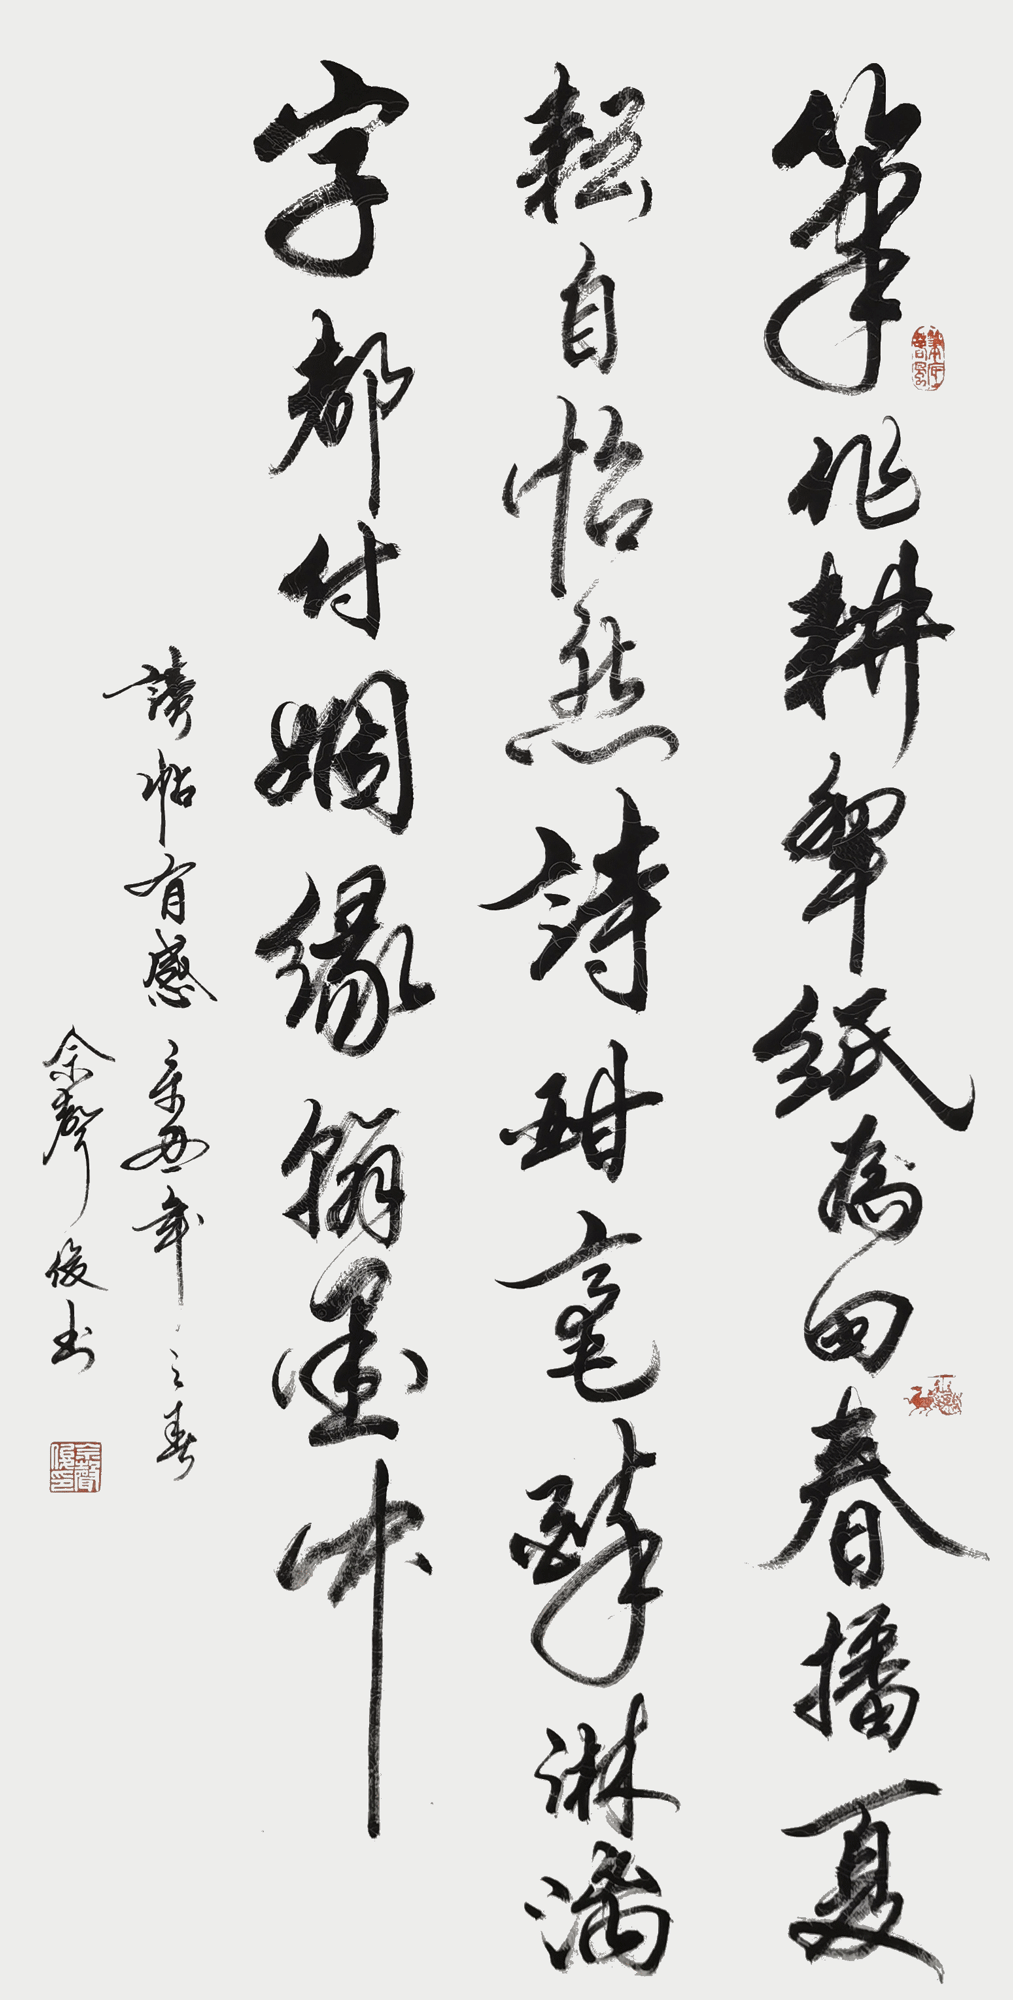 筆作耕犁紙為田春播夏
耘自怡然詩酣毫醉淋漓
字都付姻緣翰墨中
讀帖有感辛丑年之春
余聲俊书
余聲俊印